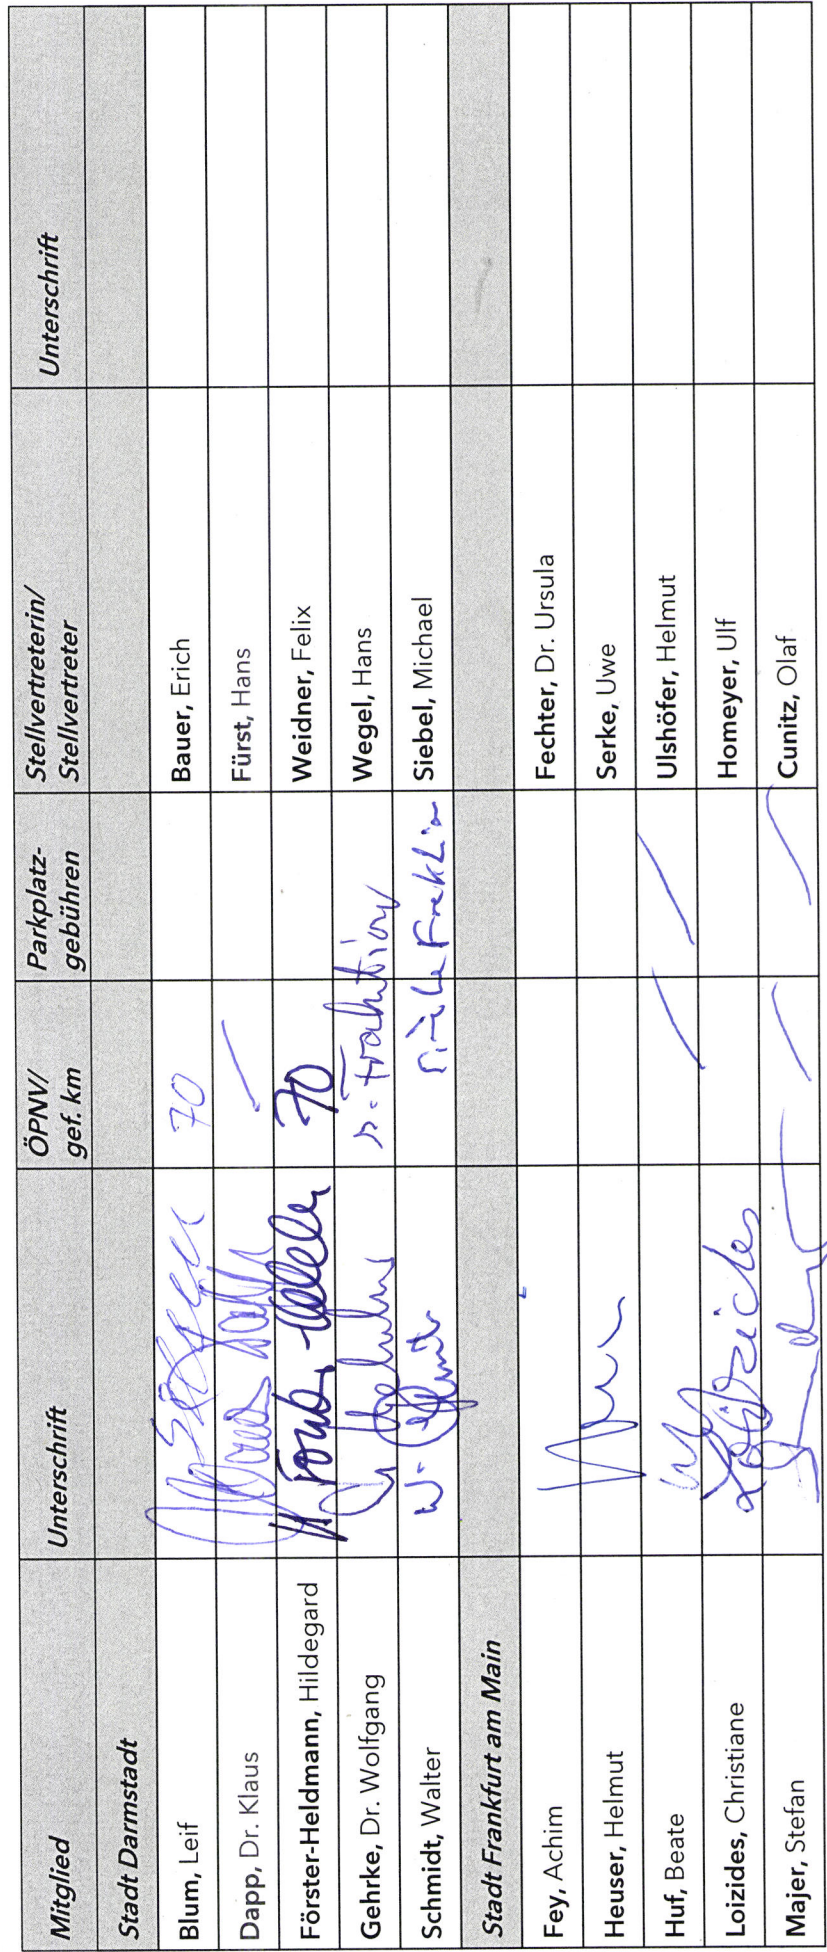 Mitglied Unterschrift ÖPNV/ gef. km Parkplatz- gebühren Stellvertreterin/ Stellvertreter Unterschrift
Stadt Darmstadt
Blum, Leif 70 Bauer, Erich
Dapp, Dr. Klaus Fürst, Hans
Förster-Heldmann, Hildegard 70 Weidner, Felix
Gehrke, Dr. Wolfgang s. Fraktion Wegel, Hans
Schmidt, Walter W. Schmidt siehe Fraktion Siebel, Michael
Stadt Frankfurt am Main
Fey, Achim Fechter, Dr. Ursula
Heuser, Helmut Serke, Uwe
Huf, Beate Ulshöfer, Helmut
Loizides, Christiane Loizides Homeyer, Ulf
Majer, Stefan Cunitz, Olaf